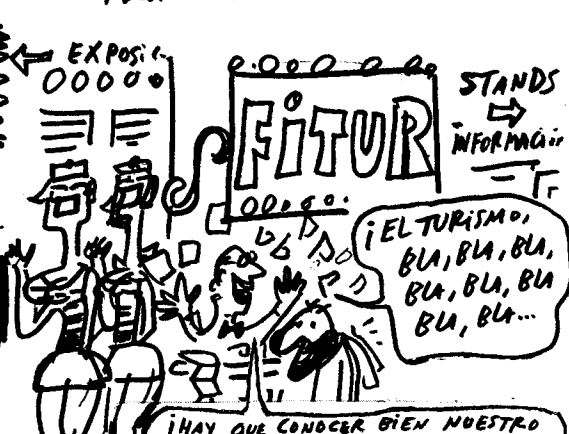 EXPOSIC
FiTUR
STANDS
iNFORMACiÓN
¡EL TURISMO,
BLA, BLA, BLA,
BLA, BLA, BLA
BLA, BLA...
¡HAY QUE CONOCER BiEN NUESTRO